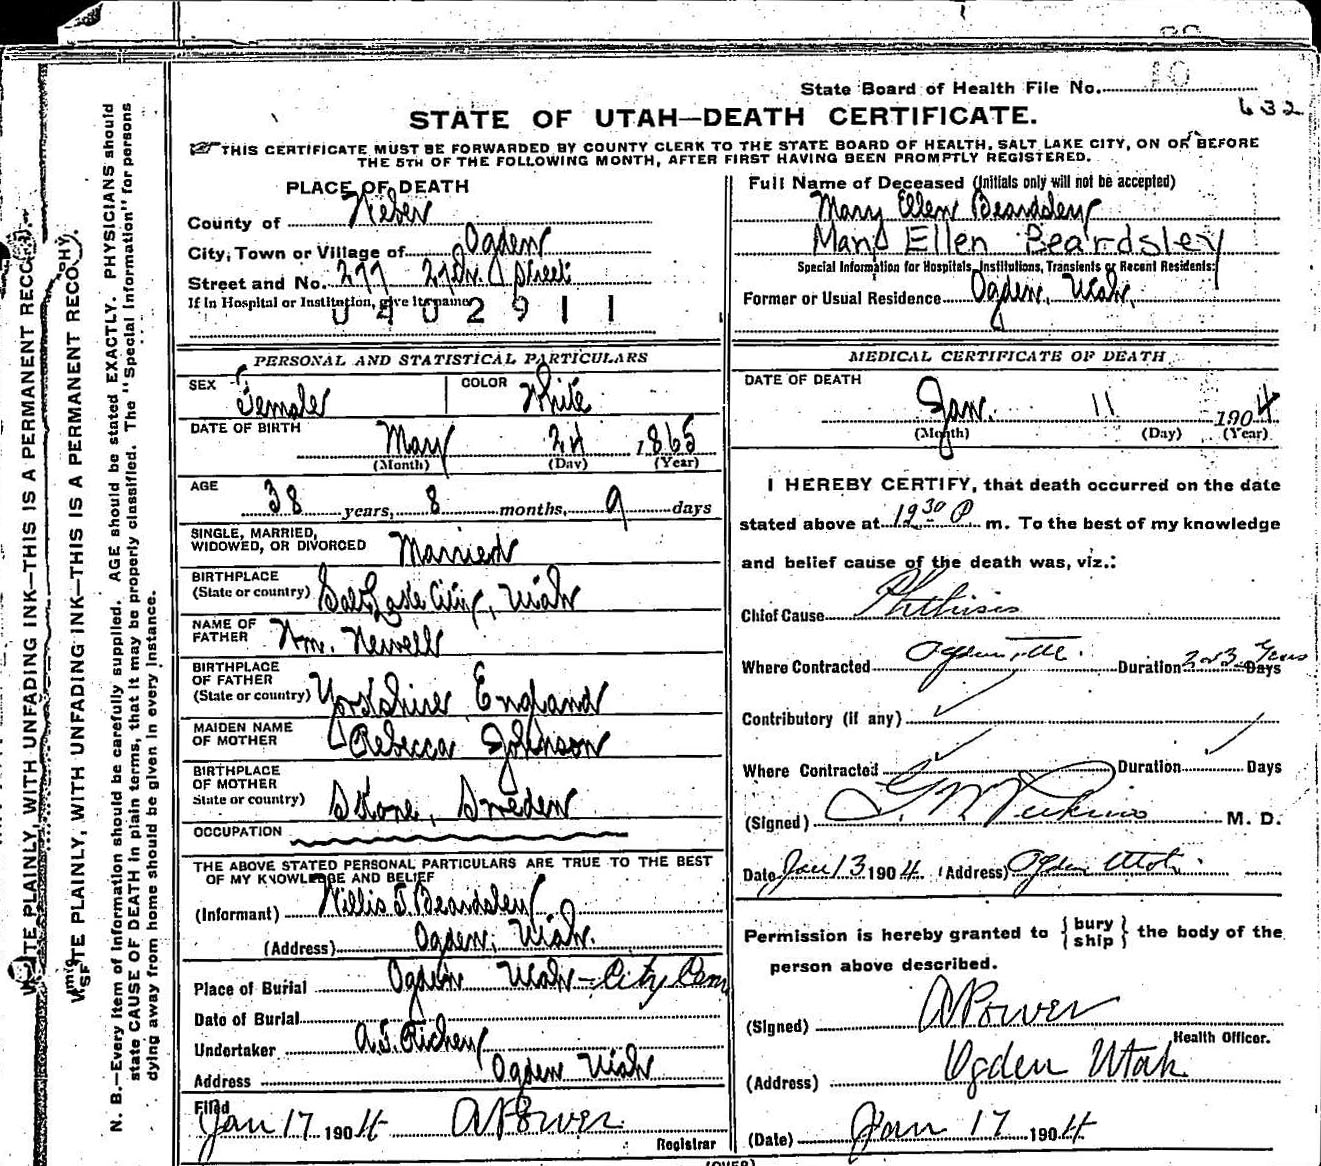 State Board of Health File No. 10
632
STATE OF UTAH—DEATH CERTIFICATE.
THIS CERTIFICATE MUST BE FORWARDED BY COUNTY CLERK TO THE STATE BOARD OF HEALTH, SALT LAKE CITY, ON OR BEFORE
THE 5TH OF THE FOLLOWING MONTH, AFTER FIRST HAVING BEEN PROMPTLY REGISTERED.
PLACE OF DEATH
County of Weber
City, Town or Village of Ogden
Street and No. 277 27th Street
If in Hospital or Institution, give its name
0402911
Full Name of Deceased (Initials only will not be accepted)
Mary Ellen Beardsley
Mary Ellen Beardsley
Special Information for Hospitals, Institutions, Transients or Recent Residents:
Former or Usual Residence Ogden, Utah.
PERSONAL AND STATISTICAL PARTICULARS
SEX Female COLOR White
DATE OF BIRTH May 24 1865
(Month) (Day) (Year)
AGE 38 years, 8 months, 9 days
SINGLE, MARRIED,
WIDOWED, OR DIVORCED Married
BIRTHPLACE
(State or country) Salt Lake City, Utah
NAME OF
FATHER Wm. Newell
BIRTHPLACE
OF FATHER
(State or country) Yorkshire England
MAIDEN NAME
OF MOTHER Rebecca Johnson
BIRTHPLACE
OF MOTHER
State or country) Skone, Sweden
OCCUPATION
THE ABOVE STATED PERSONAL PARTICULARS ARE TRUE TO THE BEST
OF MY KNOWLEDGE AND BELIEF
(Informant) Willis T. Beardsley
(Address) Ogden, Utah.
Place of Burial Ogden Utah - City Cem
Date of Burial
Undertaker A.J. Richey
Address Ogden Utah
Filed
Jan 17 1904 A Power
Registrar
MEDICAL CERTIFICATE OF DEATH
DATE OF DEATH
Jan. 11 1904
(Month) (Day) (Year)
I HEREBY CERTIFY, that death occurred on the date
stated above at 12 30 P m. To the best of my knowledge
and belief cause of the death was, viz.:
Chief Cause Phthisis
Where Contracted Ogden, Duration 2 or 3 Years Days
Contributory (if any)
Where Contracted Duration Days
(Signed) G W Perkins M. D.
Date Jan 13 1904 (Address) Ogden Utah
Permission is hereby granted to { bury ship } the body of the
person above described.
(Signed) A Power
Health Officer.
(Address) Ogden Utah
(Date) Jan 17 1904
(OVER)
WRITE PLAINLY, WITH UNFADING INK—THIS IS A PERMANENT RECORD.
TE PLAINLY, WITH UNFADING INK—THIS IS A PERMANENT RECO
N. B.—Every item of information should be carefully supplied. AGE should be stated EXACTLY. PHYSICIANS should
state CAUSE OF DEATH in plain terms, that it may be properly classified. The "Special Information" for persons
dying away from home should be given in every instance.